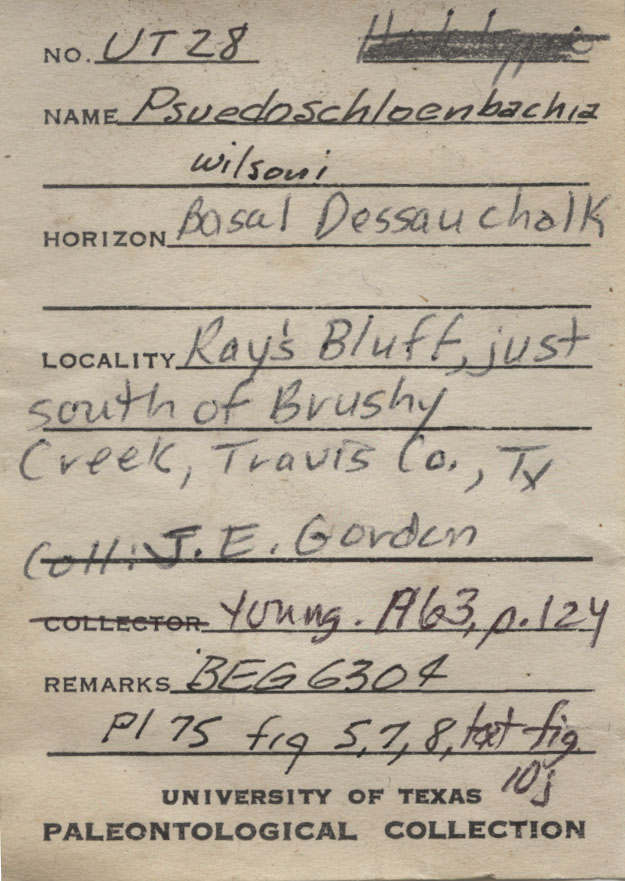 NO. UT 28
NAME Psuedoschloenbachia
wilsoni
HORIZON Basal Dessau chalk
LOCALITY Ray's Bluff, just
south of Brushy
Creek, Travis Co., Tx
Coll: J. E. Gordon
COLLECTOR Young. 1963, p. 124
REMARKS BEG 6304
Pl 75 fig 5, 7, 8, text fig
10j
UNIVERSITY OF TEXAS
PALEONTOLOGICAL COLLECTION